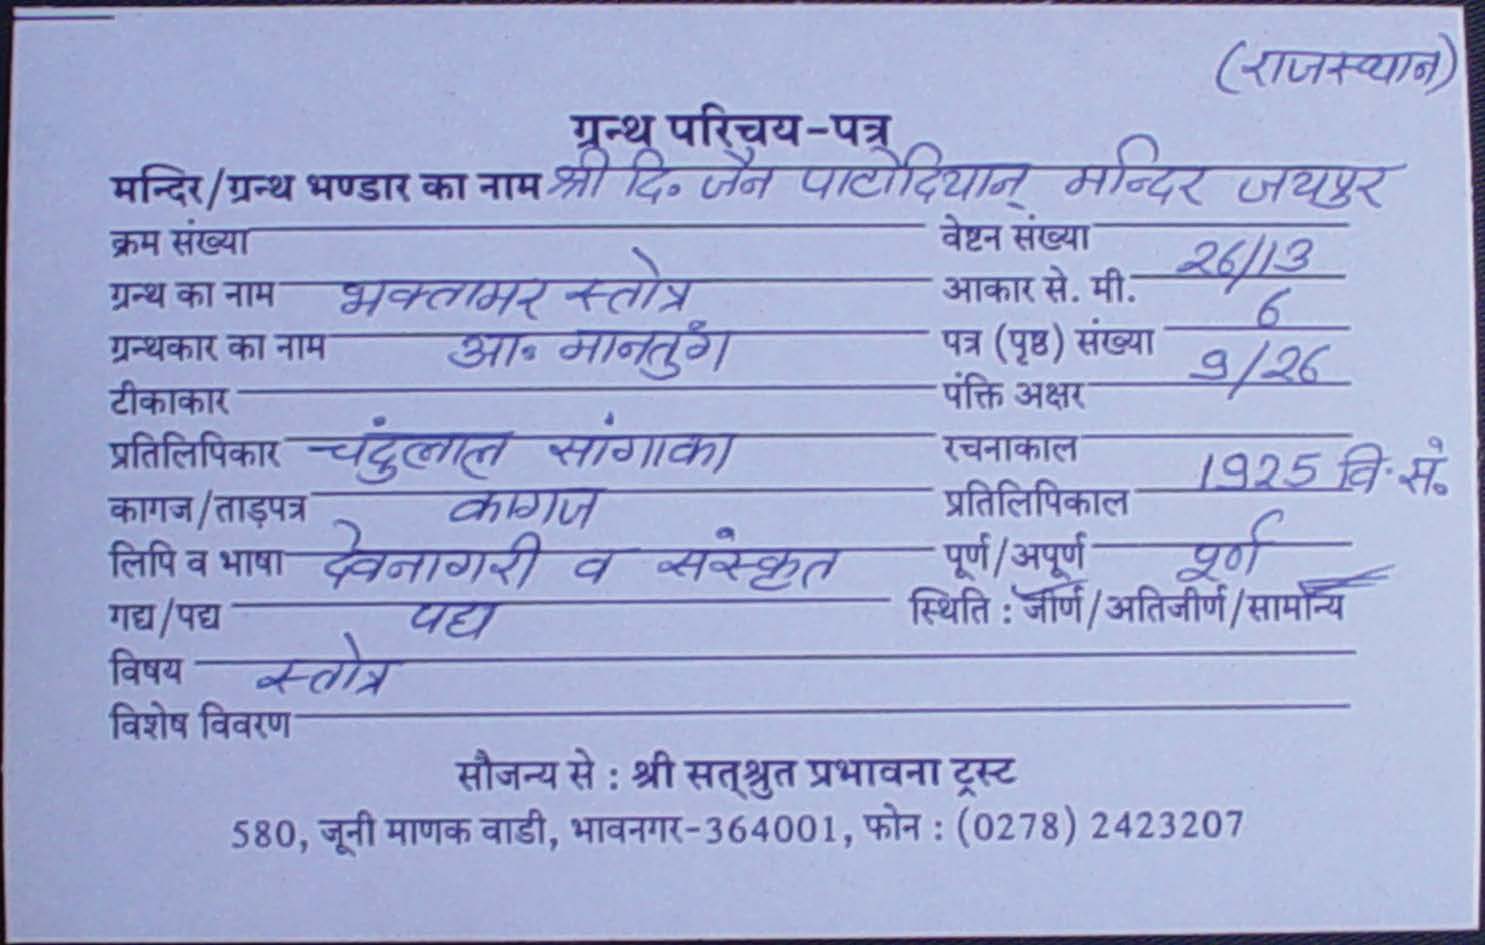 (राजस्थान)
ग्रन्थ परिचय-पत्र
मन्दिर/ग्रन्थ भण्डार का नाम श्री दि॰ जैन पाटोदियान् मन्दिर जयपुर
क्रम संख्या वेष्टन संख्या
ग्रन्थ का नाम भक्तामर स्तोत्र आकार से. मी. 26/13
ग्रन्थकार का नाम आ॰ मानतुंग पत्र (पृष्ठ) संख्या 6
टीकाकार पंक्ति अक्षर 9/26
प्रतिलिपिकार चंदुलाल सांगाका रचनाकाल
कागज/ताड़पत्र कागज प्रतिलिपिकाल 1925 वि. सं॰
लिपि व भाषा देवनागरी व संस्कृत पूर्ण/अपूर्ण पूर्ण
गद्य/पद्य पद्य स्थिति : जीर्ण/अतिजीर्ण/सामान्य
विषय स्तोत्र
विशेष विवरण
सौजन्य से : श्री सत्श्रुत प्रभावना ट्रस्ट
580, जूनी माणक वाडी, भावनगर-364001, फोन : (0278) 2423207